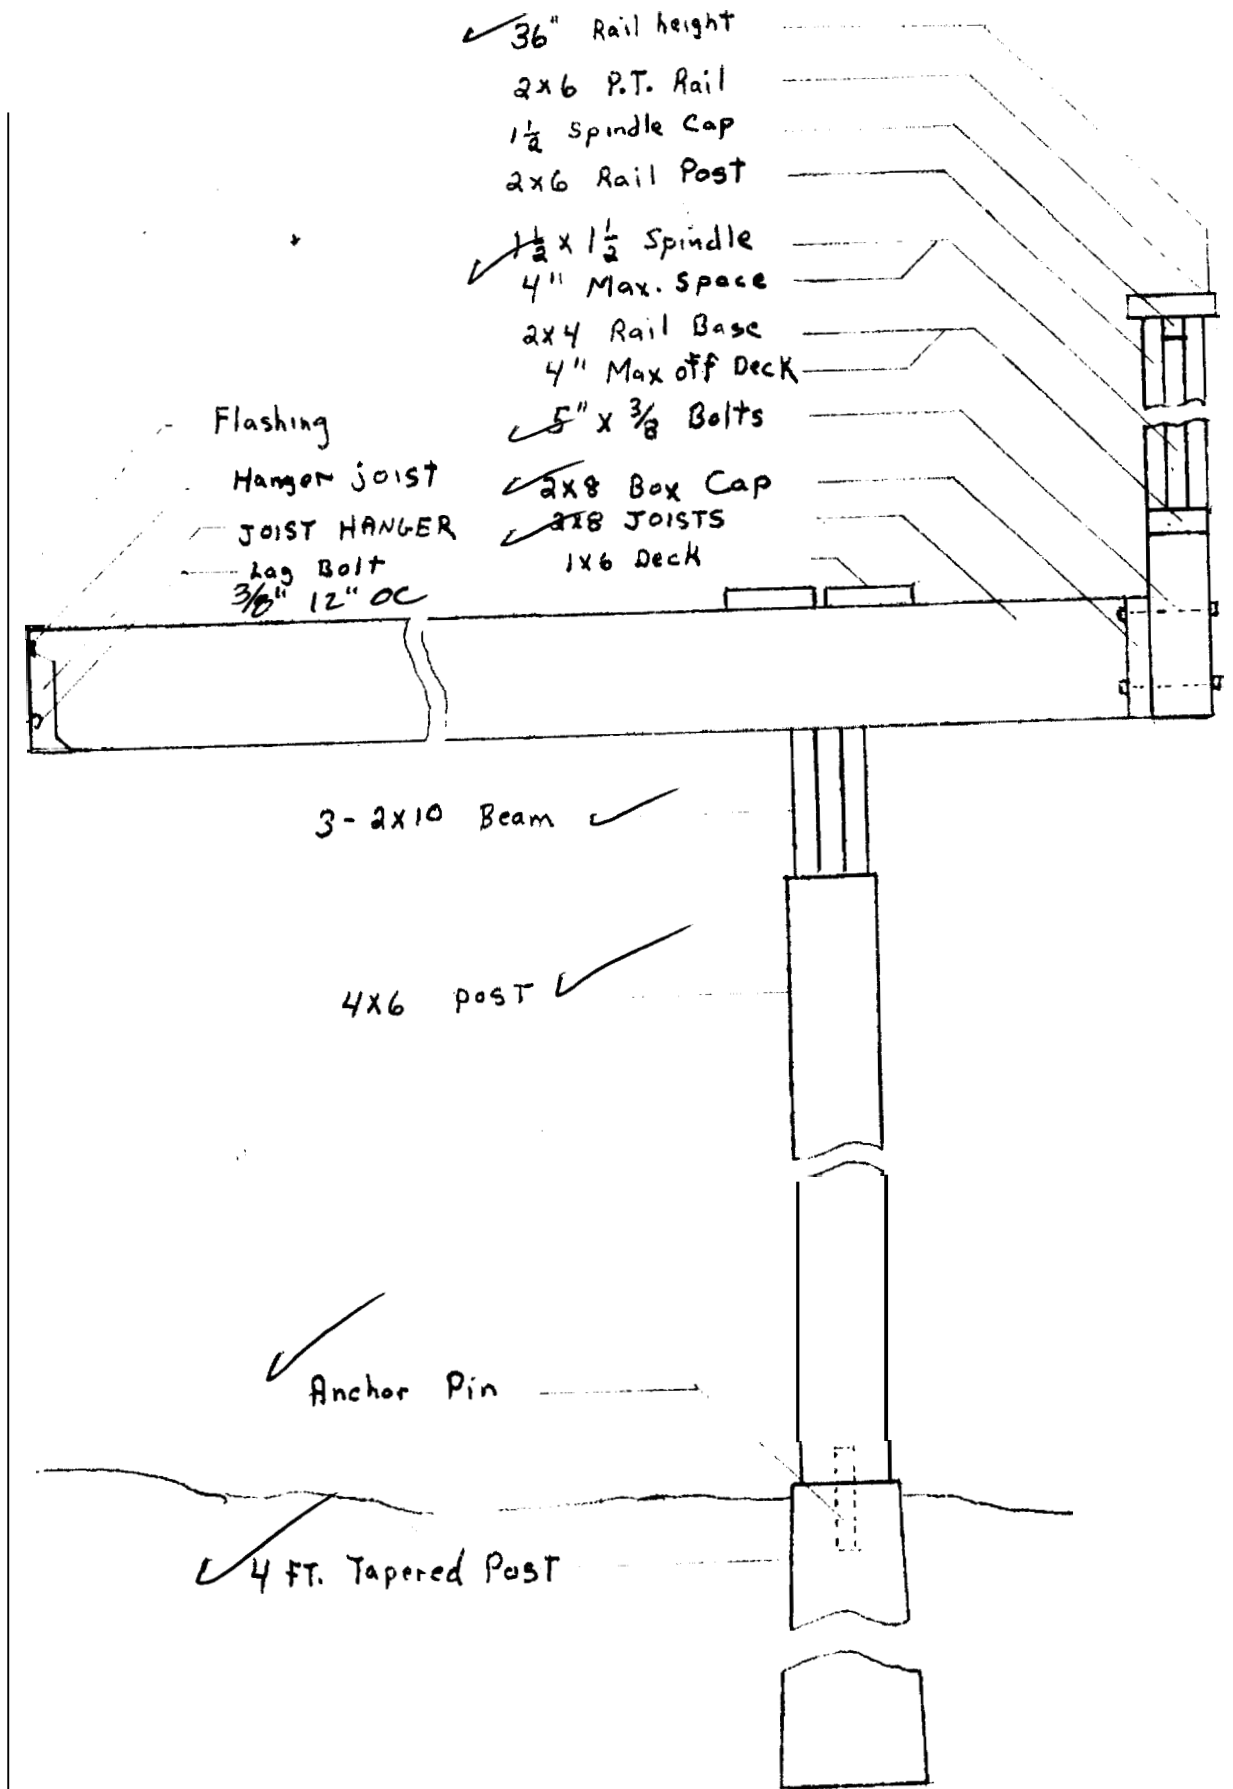 36" Rail height
2x6 P.T. Rail
1 1/2 Spindle Cap
2x6 Rail Post
1 1/2 x 1 1/2 Spindle
4" Max. Space
2x4 Rail Base
4" Max off Deck
5" x 3/8 Bolts
2x8 Box Cap
2x8 JOISTS
1x6 Deck
Flashing
Hanger joist
JOIST HANGER
Lag Bolt
3/8" 12" OC
3-2x10 Beam
4x6 post
Anchor Pin
4 FT. Tapered Post